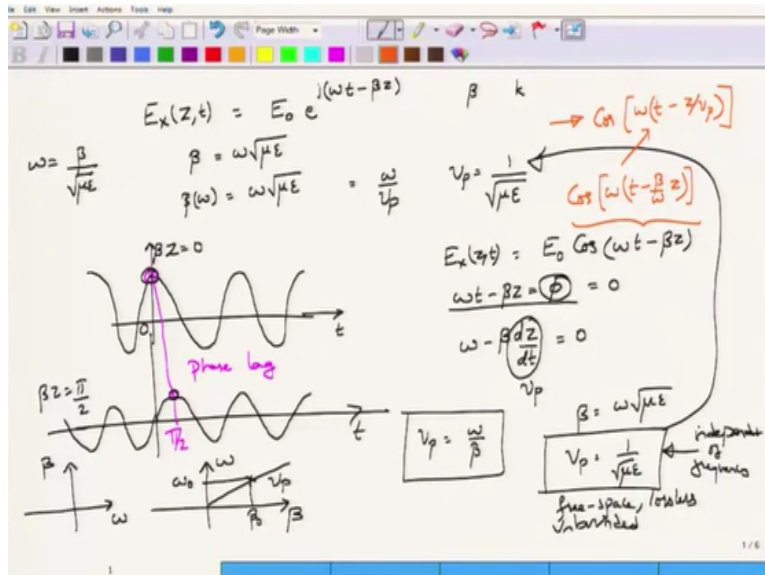 Edit View Insert Actions Tools Help
Page Width
B I
E_x(z,t) = E_0 e^{j(ωt-βz)}
β k
→ Cos[ω(t-z/v_p)]
ω = β/√με
β = ω√με
β(ω) = ω√με = ω/v_p
v_p = 1/√με
Cos[ω(t-β/ω z)]
E_x(z,t) = E_0 Cos(ωt-βz)
ωt-βz = φ = 0
ω - β dz/dt = 0
v_p
βz=0
0
t
phase lag
βz = π/2
π/2
t
v_p = ω/β
β = ω√με
v_p = 1/√με
independent of frequency
free-space, lossless
unbounded
β
ω
ω
ω_0
v_p
β_0
β
1/6
1